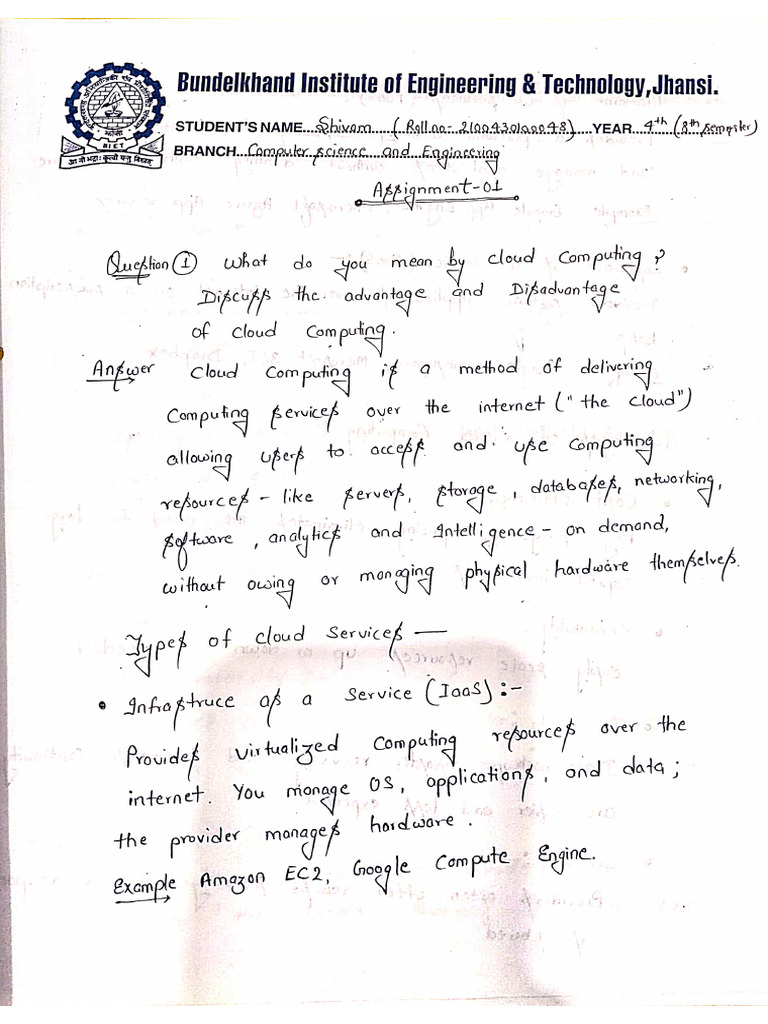 Bundelkhand Institute of Engineering & Technology, Jhansi.
STUDENT'S NAME...Shivam......(Roll.no:- 2100430100048)......YEAR...4th (8th semester)
BRANCH...Computer science and Engineering
Assignment-01
Question ① What do you mean by cloud Computing?
Discuss the advantage and Disadvantage
of cloud Computing.
Answer Cloud Computing is a method of delivering
Computing services over the internet ("the cloud")
allowing users to access and use computing
resources - like servers, storage, databases, networking,
software, analytics and Intelligence - on demand,
without owing or managing physical hardware themselves.
Types of cloud Services —
• Infrastruce as a Service (IaaS) :-
Provides virtualized Computing resources over the
internet. You manage OS, applications, and data;
the provider manages hardware.
Example Amazon EC2, Google Compute Engine.